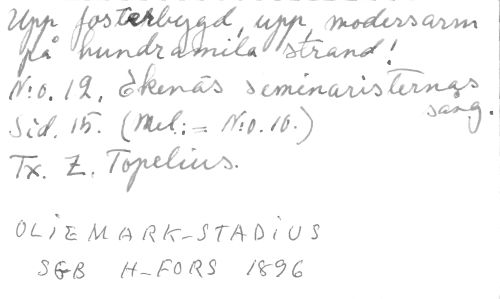 Upp fosterbygd, upp, modersarm
på hundramila strand!
N:o. 12. Ekenäs seminaristernas
sång.
Sid. 15. (Mel: = N:o. 10.)
Tx. Z. Topelius.
OLIEMARK-STADIUS
SGB H-FORS 1896